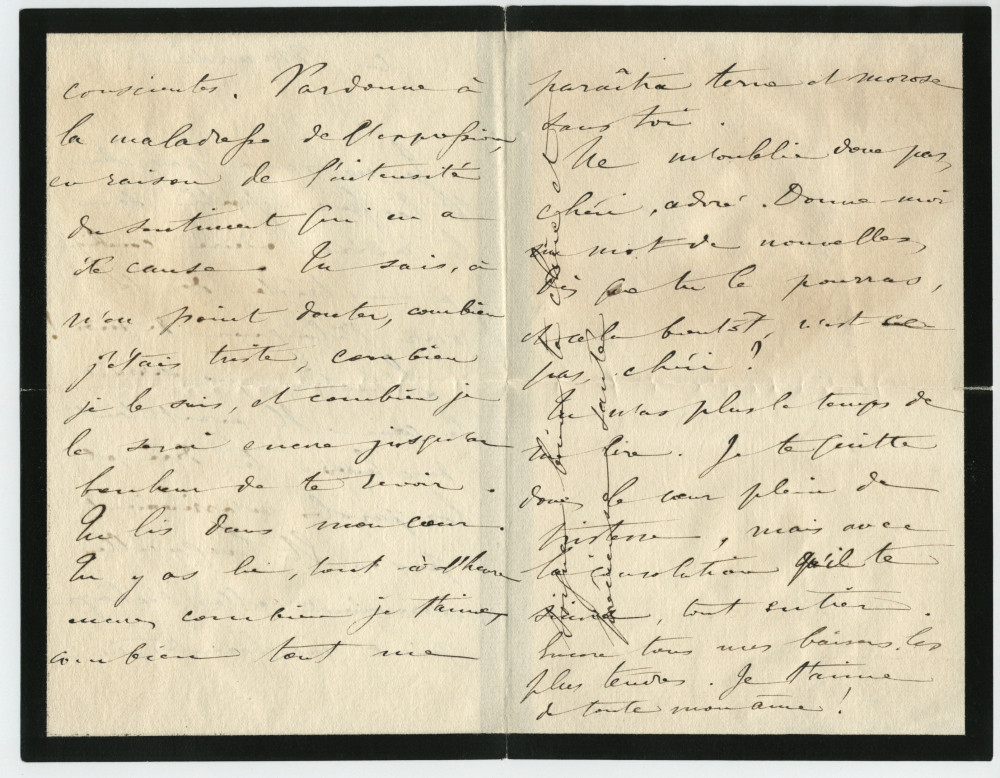 conscientes. Pardonne à
la maladresse de l'expression,
en raison de l'intensité
du sentiment qui en a
été cause. Tu sais, à
n'en point douter, combien
j'étais triste, combien
je le suis, et combien je
le serai encore jusqu'au
bonheur de te revoir.
Tu lis dans mon cœur.
Tu y as lu, tout à l'heure
encore, combien je t'aime,
combien tout me
paraîtra terne et morose
sans toi.
Ne m'oublie donc pas,
chéri, adoré. Donne-moi
un mot de nouvelles,
dès que tu le pourras,
et cela bientôt, n'est ce
pas, chéri ?
Tu n'as plus le temps de
lire. Je te quitte
donc le cœur plein de
tristesse, mais avec
la consolation qu'il te
, tout entier.
Encore tous mes baisers les
plus tendres. Je t'aime
de toute mon âme !
santé